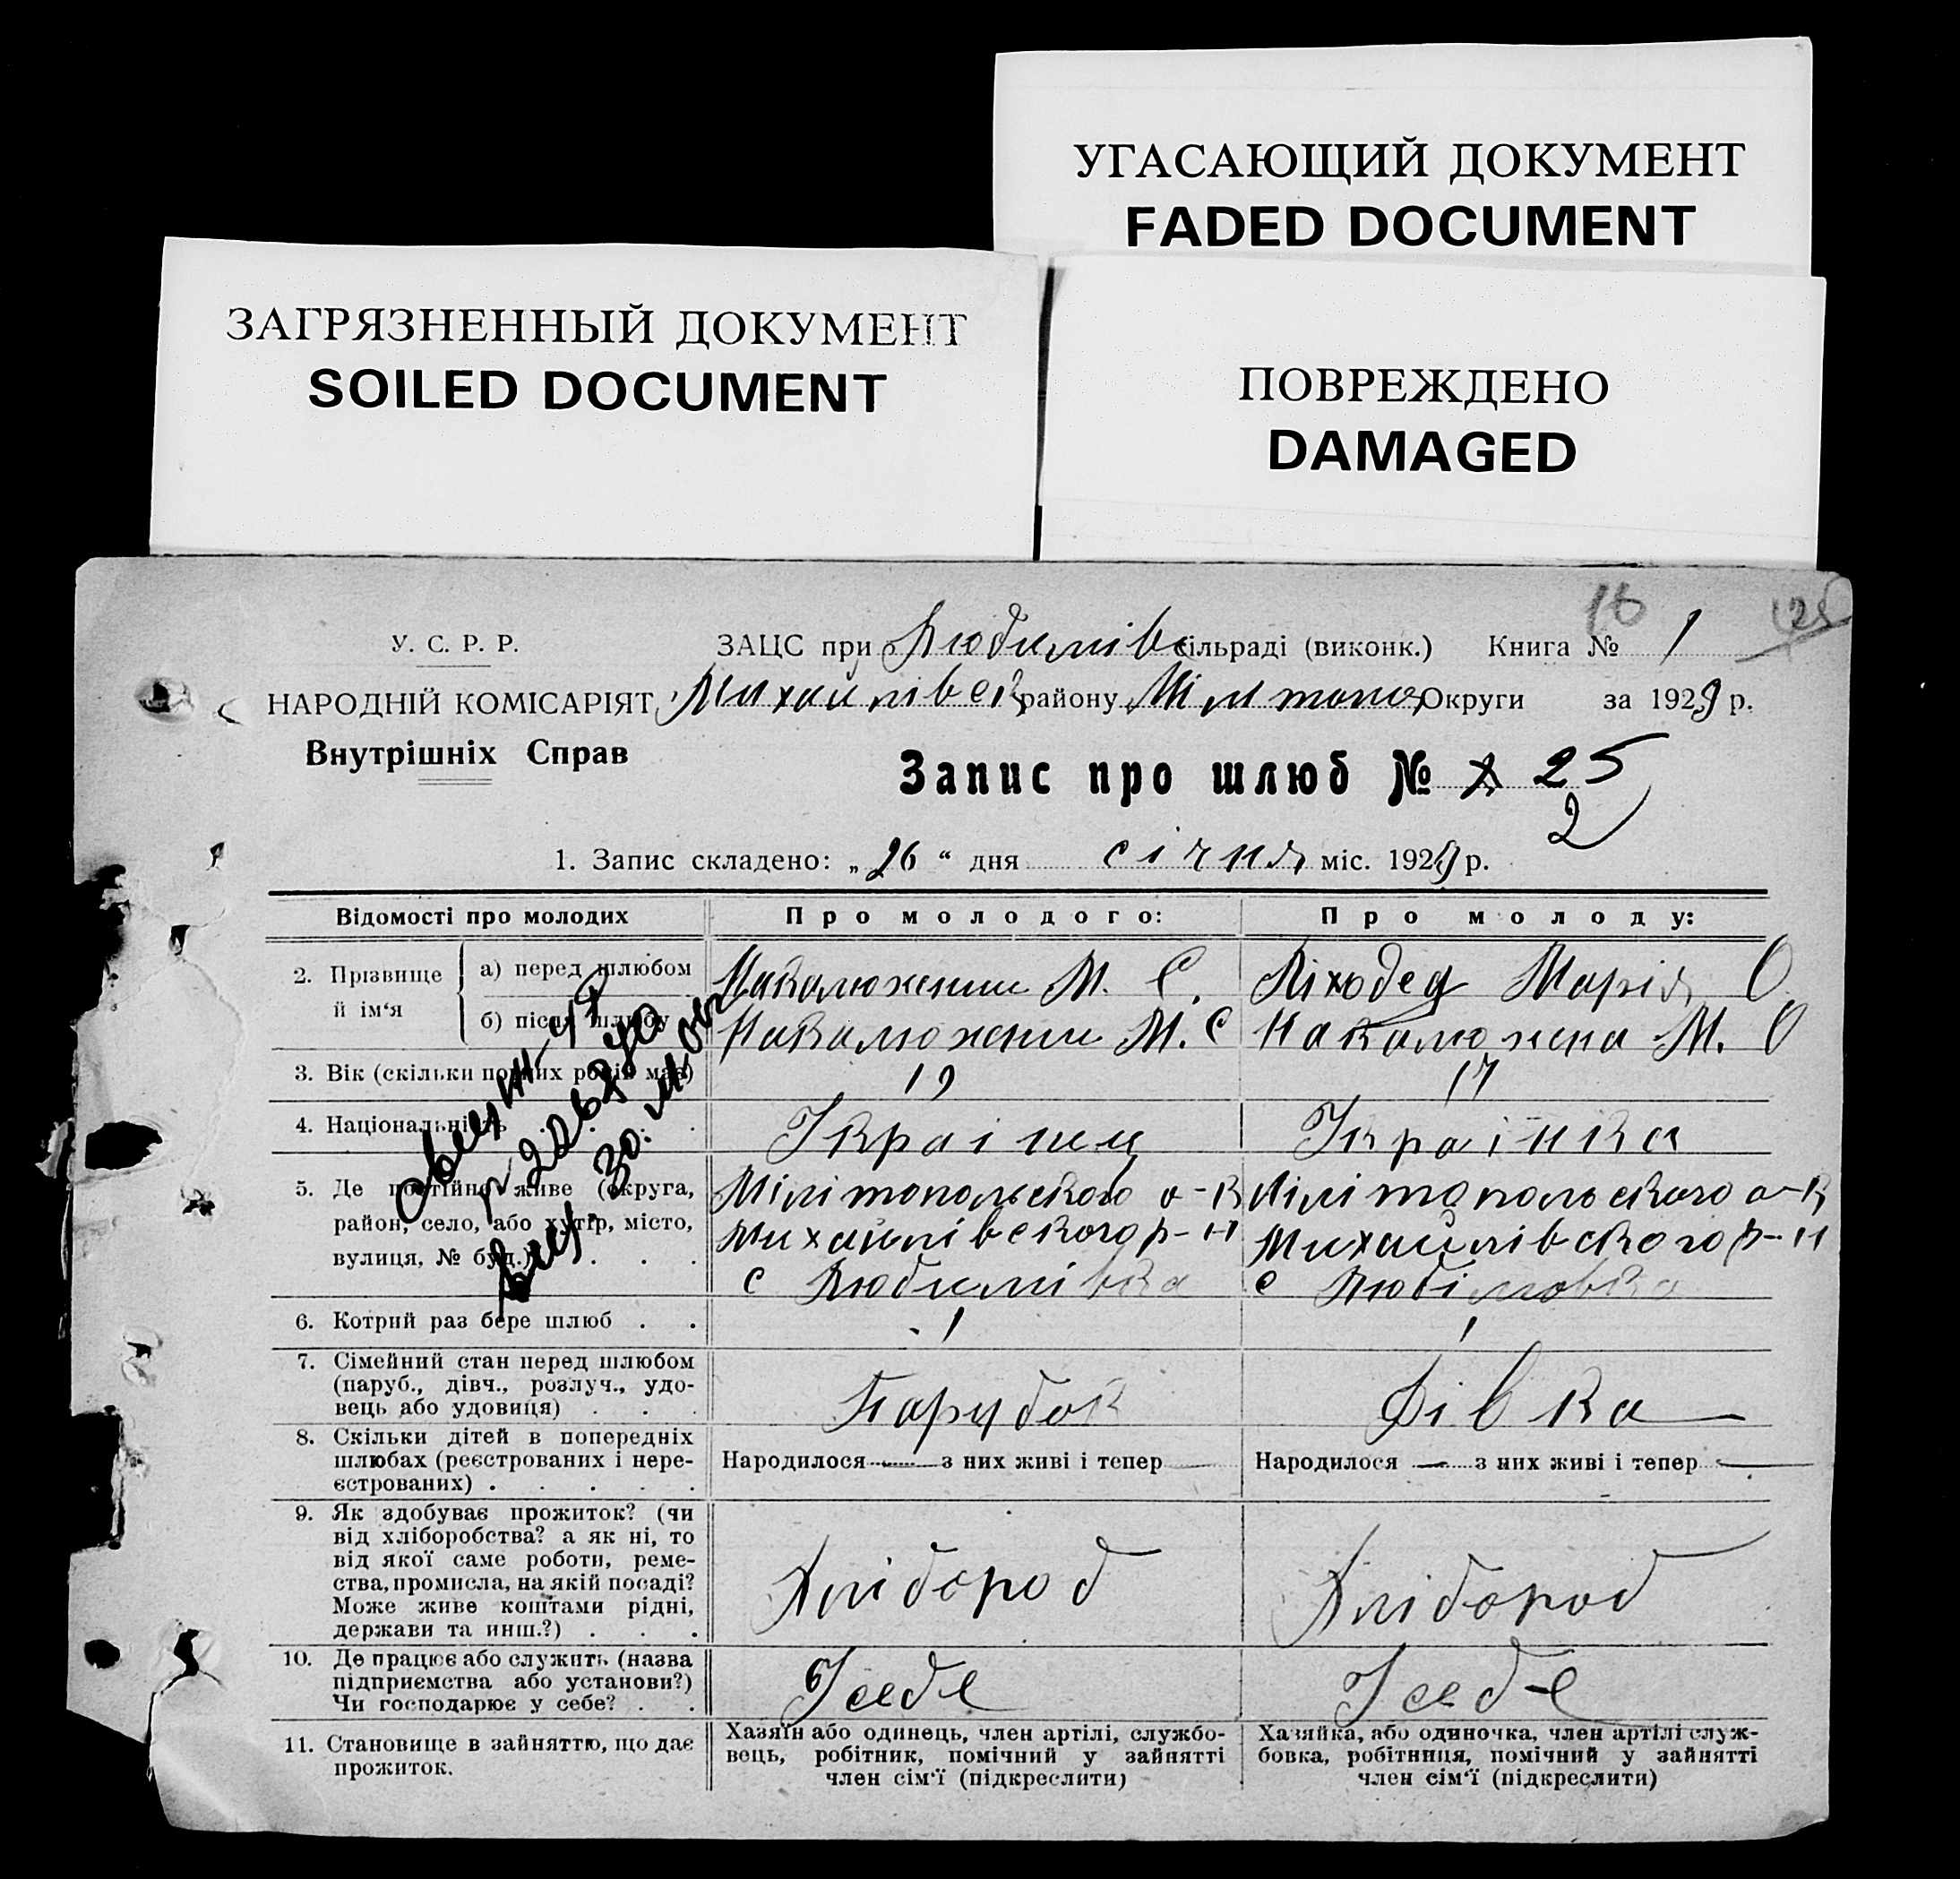 УГАСАЮЩИЙ ДОКУМЕНТ
FADED DOCUMENT
ЗАГРЯЗНЕННЫЙ ДОКУМЕНТ
SOILED DOCUMENT
ПОВРЕЖДЕНО
DAMAGED
16 125
У. С. Р. Р.
ЗАЦС при Любимівс сільраді (виконк.) Книга № 1
НАРОДНІЙ КОМІСАРІЯТ Михайлівск району Мілітопол Округи за 1929 р.
Внутрішніх Справ
Запис про шлюб № 25
2
1. Запис складено: „26“ дня січня міс. 1929 р.
Відомості про молодих Про молодого: Про молоду:
2. Прізвище й ім‘я
а) перед шлюбом Накалюжний М. С. Ліходед Марія О
б) після шлюбу Накалюжний М. С Накалюжна М. О
3. Вік (скільки повних років має) 19 17
4. Національність . . . Україниц Українка
5. Де постійно живе (округа, район, село, або хутір, місто, вулиця, № буд.) . . .
Мілітопольского о-к Мілітопольского о-к
Михайлівского р-н Михайлівского р-н
с Любимівка с Любімовка
6. Котрий раз бере шлюб . . 1 1
7. Сімейний стан перед шлюбом
(паруб., дівч., розлуч., удо-
вець або удовиця) . . . Парубок Дівка
8. Скільки дітей в попередніх
шлюбах (реєстрованих і нере-
єстрованих) . . . . .
Народилося — з них живі і тепер — Народилося — з них живі і тепер —
9. Як здобуває прожиток? (чи
від хліборобства? а як ні, то
від якої саме роботи, реме-
ства, промисла, на якій посаді?
Може живе коштами рідні,
держави та инш.?) . . .
Хлібороб Хлібороб
10. Де працює або служить (назва
підприємства або установи?)
Чи господарює у себе? . .
У себе У себе
11. Становище в зайняттю, що дає
прожиток.
Хазяїн або одинець, член артілі, службо-
вець, робітник, помічний у зайнятті
член сім‘ї (підкреслити)
Хазяйка, або одиночка, член артілі служ-
бовка, робітниця, помічний у зайнятті
член сім‘ї (підкреслити)